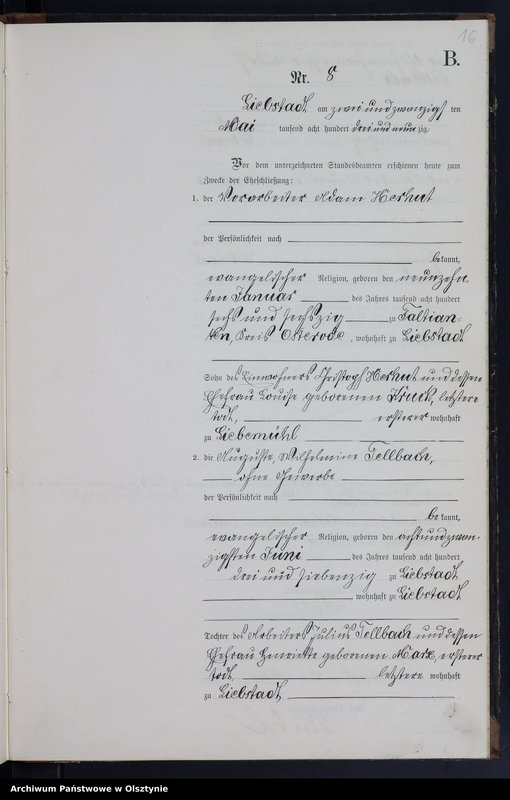 16
B.
Nr. 8
Liebstadt am zwei und zwanzigsten
Mai tausend acht hundert drei und neunzig.
Vor dem unterzeichneten Standesbeamten erschienen heute zum
Zwecke der Eheschließung:
1. der Vorarbeiter Adam Herhut
der Persönlichkeit nach
bekannt,
evangelischer Religion, geboren den neunzehn
ten Januar des Jahres tausend acht hundert
sechs und sechszig zu Taltian-
ken, Kreis Osterode, wohnhaft zu Liebstadt
Sohn des Einwohners Christoph Herhut und dessen
Ehefrau Louise geborenen Kruck, letztere
todt, ersterer wohnhaft
zu Liebemühl
2. die Auguste, Wilhelmine Tellbach,
ohne Gewerbe
der Persönlichkeit nach
bekannt,
evangelischer Religion, geboren den achtundzwan-
zigsten Juni des Jahres tausend acht hundert
drei und siebenzig zu Liebstadt
, wohnhaft zu Liebstadt
Tochter des Arbeiters Julius Tellbach und dessen
Ehefrau Henriette geborenen Marx, ersterer
todt, letztere wohnhaft
zu Liebstadt,
Archiwum Państwowe w Olsztynie